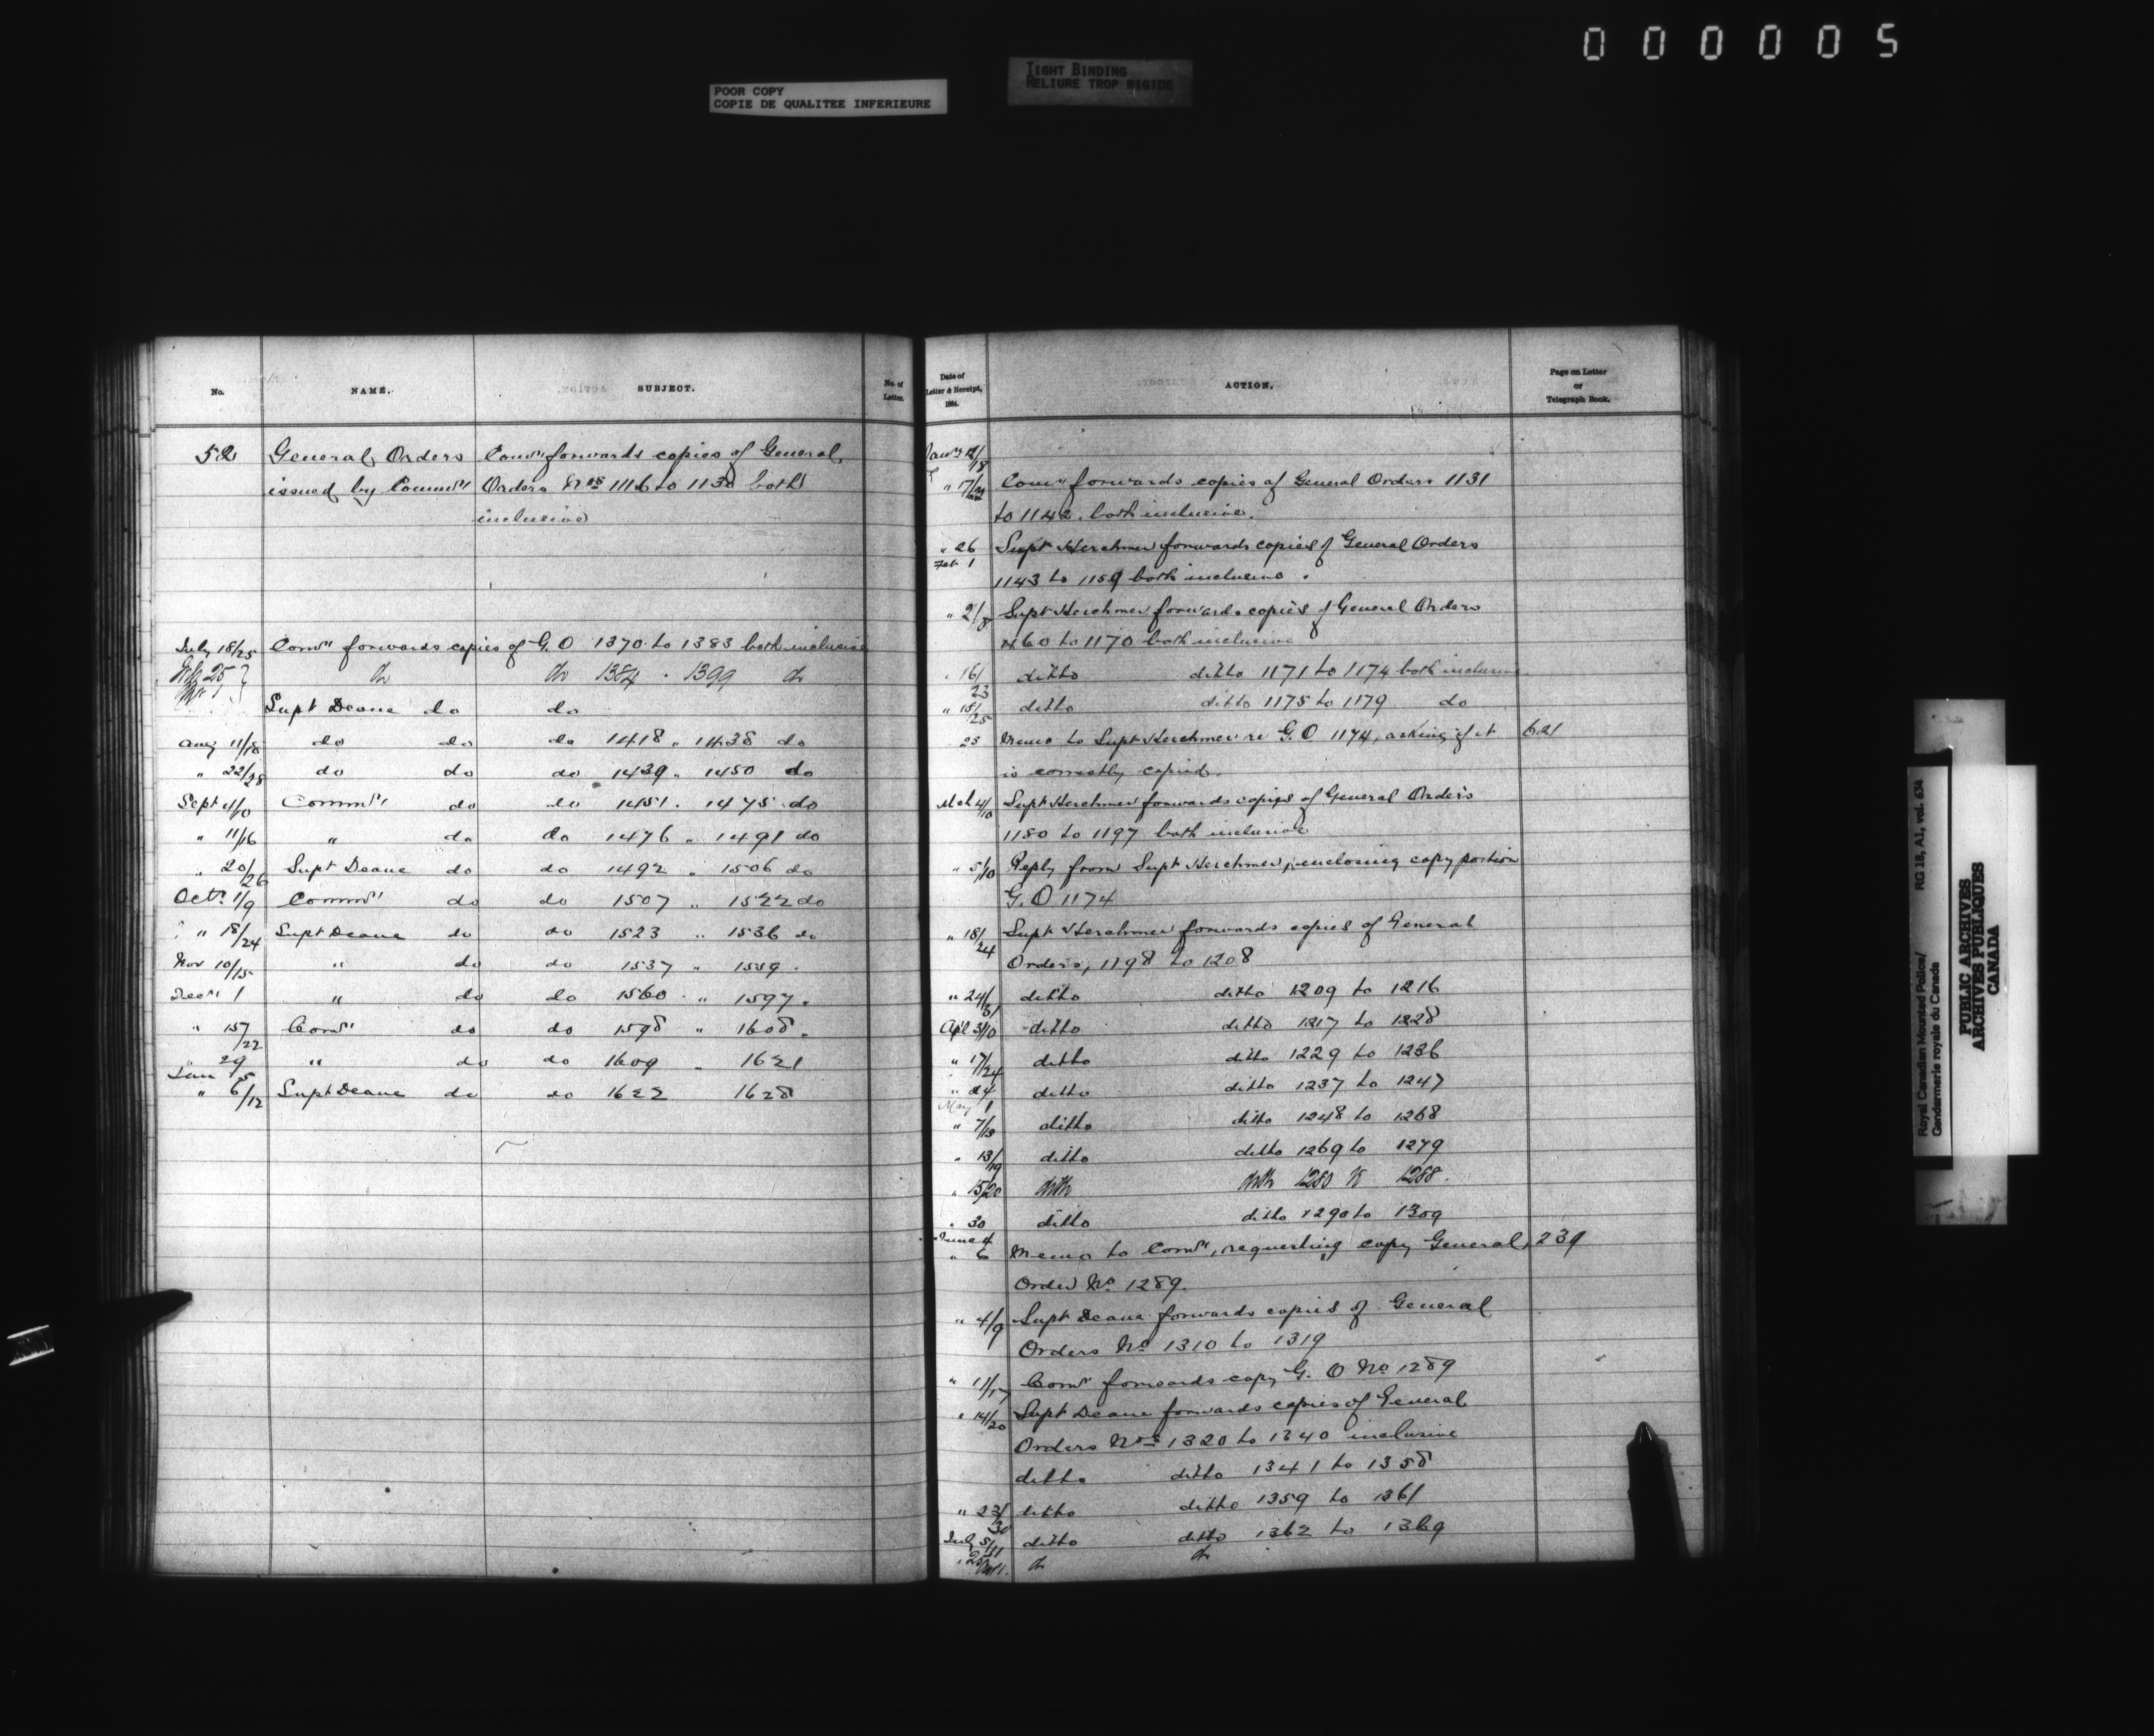 000005
POOR COPY
COPIE DE QUALITEE INFERIEURE
TIGHT BINDING
RELIURE TROP RIGIDE
No. NAME. SUBJECT. No. of Letter.
52 General Orders Comr forwards copies of General
issued by Commr Orders Nos 1116 to 1130 both
inclusive
July 18/25 Comr forwards copies of G.O 1370 to 1383 both inclusive
July 25 do do 1384 " 1399 do
Supt Deane do do
Aug 11/18 do do do 1418 " 1438 do
" 22/28 do do do 1439 " 1450 do
Sept 4/10 Commr do do 1451 " 1475 do
" 11/16 " do do 1476 " 1491 do
" 20/26 Supt Deane do do 1492 " 1506 do
Octr 1/9 Commr do do 1507 " 1522 do
" 18/24 Supt Deane do do 1523 " 1536 do
Nov 10/15 " do do 1537 " 1559 "
Decr 1 " do do 1560 " 1597 "
" 15/22 Comr do do 1598 " 1608 "
" 29 " do do 1609 " 1621
Jan 5
" 6/12 Supt Deane do do 1622 1628
Date of Letter & Receipt, 1884. ACTION. Page on Letter or Telegraph Book.
Jany 12/18
" 17/22 Comr forwards copies of General Orders 1131
to 1142. both inclusive.
" 26 Supt Herchmer forwards copies of General Orders
Feb 1 1143 to 1159 both inclusive.
" 2/8 Supt Herchmer forwards copies of General Orders
1160 to 1170 both inclusive
" 16/23 ditto ditto 1171 to 1174 both inclusive
" 18/25 ditto ditto 1175 to 1179 do
25 Memo to Supt Herchmer re G.O 1174, asking if it 621
is correctly copied.
Mch 4/10 Supt Herchmer forwards copies of General Orders
1180 to 1197 both inclusive
" 5/10 Reply from Supt Herchmer, enclosing copy portion
G.O 1174
" 18/24 Supt Herchmer forwards copies of General
Orders, 1198 to 1208
" 24/31 ditto ditto 1209 to 1216
Apl 3/10 ditto ditto 1217 to 1228
" 17/24 ditto ditto 1229 to 1236
" 24 ditto ditto 1237 to 1247
May 1
" 7/13 ditto ditto 1248 to 1268
" 13/19 ditto ditto 1269 to 1279
" 15/20 ditto ditto 1280 to 1288.
" 30 ditto ditto 1290 to 1309
June 4
" 6 Memo to Comr, requesting copy General 239
Order No 1289.
" 4/9 Supt Deane forwards copies of General
Orders No 1310 to 1319
" 11/17 Comr forwards copy G. O No 1289
" 14/20 Supt Deane forwards copies of General
Orders Nos 1320 to 1340 inclusive
ditto ditto 1341 to 1358
" 23/30 ditto ditto 1359 to 1361
July 5/11 ditto ditto 1362 to 1369
" 25 do do
Royal Canadian Mounted Police/ RG 18, A1, vol. 634
Gendarmerie royale du Canada
PUBLIC ARCHIVES
ARCHIVES PUBLIQUES
CANADA